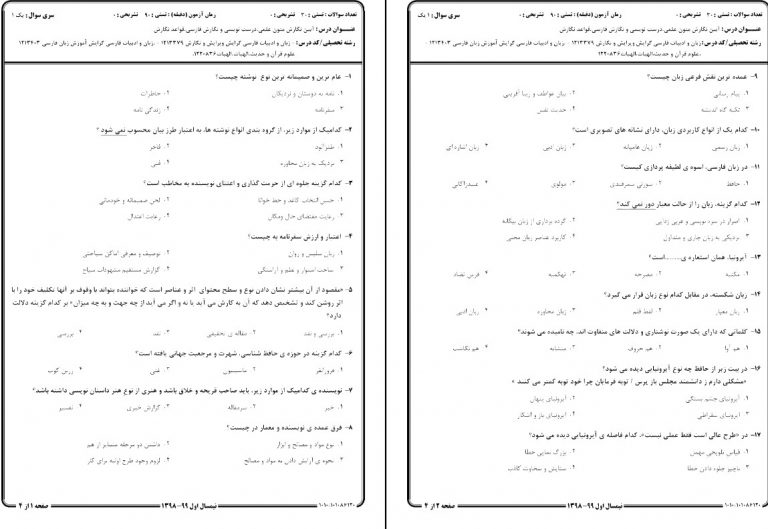 تعداد سوالات: تستی: ۳۰ تشریحی: ۰
زمان آزمون (دقیقه): تستی: ۹۰ تشریحی: ۰
سری سوال: یک ۱
عنوان درس: آیین نگارش متون علمی، درست نویسی و نگارش فارسی، قواعد نگارش
رشته تحصیلی/کد درس: زبان و ادبیات فارسی گرایش ویرایش و نگارش ۱۲۱۳۳۷۹ - زبان و ادبیات فارسی گرایش آموزش زبان فارسی ۱۲۱۳۴۰۳
علوم قرآن و حدیث، الهیات ۱۲۲۰۸۳۶
۱- عام ترین و صمیمانه ترین نوع نوشته چیست؟
۱. نامه به دوستان و نزدیکان
۲. خاطرات
۳. سفرنامه
۴. زندگی نامه
۲- کدامیک از موارد زیر، از گروه بندی انواع نوشته ها، به اعتبار طرز بیان محسوب نمی شود؟
۱. طنزآلود
۲. فاخر
۳. نزدیک به زبان محاوره
۴. غنی
۳- کدام گزینه جلوه ای از حرمت گذاری و اعتنای نویسنده به مخاطب است؟
۱. حسن انتخاب کاغذ و خط خوانا
۲. لحن صمیمانه و خودمانی
۳. رعایت مقتضای حال ومکان
۴. رعایت اعتدال
۴- اعتبار و ارزش سفرنامه به چیست؟
۱. زبان سلیس و روان
۲. توصیف و معرفی اماکن سیاحتی
۳. ساخت استوار و نظم و آراستگی
۴. گزارش مستقیم مشهودات سیاح
۵- «مقصود از آن بیشتر نشان دادن نوع و سطح محتوای اثر و عناصر است که خواننده بتواند با وقوف بر آنها تکلیف خود را با
اثر روشن کند و تشخیص دهد که آن به کارش می آید یا نه و اگر می آید از چه جهت و به چه میزان» بر کدام گزینه دلالت
دارد؟
۱. بررسی و نقد
۲. مقاله ی تحقیقی
۳. نقد
۴. بررسی
۶- کدام گزینه در حوزه ی حافظ شناسی، شهرت و مرجعیت جهانی یافته است؟
۱. فروزانفر
۲. ماسینیون
۳. غنی
۴. زرین کوب
۷- نویسنده ی کدامیک از موارد زیر، باید صاحب قریحه و خلاق باشد و هنری از نوع هنر داستان نویسی داشته باشد؟
۱. خبر
۲. سرمقاله
۳. گزارش خبری
۴. تفسیر
۸- فرق عمده ی نویسنده و معمار در چیست؟
۱. نوع مواد و مصالح و ابزار
۲. داشتن دو مرحله متمایز از هم
۳. نحوه ی آرایش دادن به مواد و مصالح
۴. لزوم وجود طرح اولیه برای کار
صفحه ۱ از ۴
نیمسال اول ۹۹-۱۳۹۸
۱۰۱۰/۱۰۱۰۸۶۱۲۰
تعداد سوالات: تستی: ۳۰ تشریحی: ۰
زمان آزمون (دقیقه): تستی: ۹۰ تشریحی: ۰
سری سوال: یک ۱
عنوان درس: آیین نگارش متون علمی، درست نویسی و نگارش فارسی، قواعد نگارش
رشته تحصیلی/کد درس: زبان و ادبیات فارسی گرایش ویرایش و نگارش ۱۲۱۳۳۷۹ - زبان و ادبیات فارسی گرایش آموزش زبان فارسی ۱۲۱۳۴۰۳
علوم قرآن و حدیث، الهیات، الهیات ۱۲۲۰۸۳۶
۹- عمده ترین نقش فرعی زبان چیست؟
۱. پیام رسانی
۲. بیان عواطف و زیبا آفرینی
۳. تکیه گاه اندیشه
۴. حدیث نفس
۱۰- کدام یک از انواع کاربردی زبان، دارای نشانه های تصویری است؟
۱. زبان رسمی
۲. زبان عامیانه
۳. زبان ادبی
۴. زبان اشاره ای
۱۱- در زبان فارسی، اسوه ی لطیفه پردازی کیست؟
۱. حافظ
۲. سوزنی سمرقندی
۳. مولوی
۴. عبیدزاکانی
۱۲- کدام گزینه، زبان را از حالت معیار دور نمی کند؟
۱. اصرار در سره نویسی و عربی زدایی
۲. گرده برداری از زبان بیگانه
۳. نزدیکی به زبان جاری و متداول
۴. کاربرد عناصر زبان محلی
۱۳- آیرونیا، همان استعاره ی........است؟
۱. مکنیه
۲. مصرحه
۳. تهکمیه
۴. قرین تضاد
۱۴- زبان شکسته، در مقابل کدام نوع زبان قرار می گیرد؟
۱. زبان معیار
۲. لفظ قلم
۳. زبان محاوره
۴. زبان ادبی
۱۵- کلماتی که دارای یک صورت نوشتاری و دلالت های متفاوت اند، چه نامیده می شوند؟
۱. هم آوا
۲. هم حروف
۳. متشابه
۴. هم نگاشت
۱۶- در بیت زیر از حافظ چه نوع آیرونیایی دیده می شود؟
«مشکلی دارم ز دانشمند مجلس باز پرس / توبه فرمایان چرا خود توبه کمتر می کنند »
۱. آیرونیای چشم بستگی
۲. آیرونیای پنهان
۳. آیرونیای سقراطی
۴. آیرونیای باز و آشکار
۱۷- در «طرح عالی است فقط عملی نیست»، کدام فاصله ی آیرونیایی دیده می شود؟
۱. قیاس تلویحی مهمل
۲. بزرگ نمایی خطا
۳. ناچیز جلوه دادن خطا
۴. ستایش و سخاوت کاذب
صفحه ۲ از ۴
نیمسال اول ۹۹-۱۳۹۸
۱۰۱۰/۱۰۱۰۸۶۱۲۰